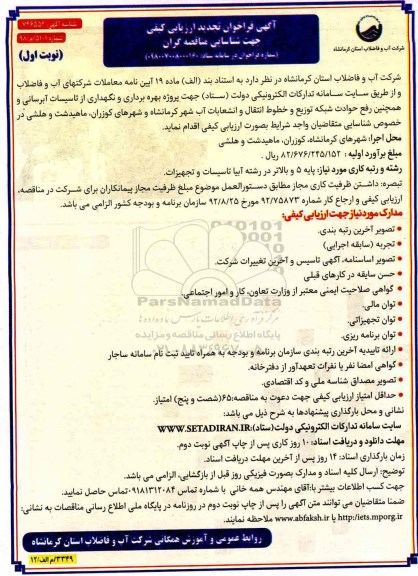 آگهی فراخوان تجدید ارزیابی کیفی
جهت شناسایی مناقصه گران
شرکت آب و فاضلاب استان کرمانشاه
(نوبت اول)
شرکت آب و فاضلاب استان کرمانشاه در نظر دارد به استناد بند (الف) ماده ۱۹ آیین نامه معاملات شرکتهای آب و فاضلاب
و از طریق سایت سامانه تدارکات الکترونیکی دولت (ستاد) جهت پروژه بهره برداری و نگهداری از تاسیسات آبرسانی و
همچنین رفع حوادث شبکه توزیع و خطوط انتقال و انشعابات آب شهر کرمانشاه و شهرهای کوزران، ماهیدشت و هلشی در
خصوص شناسایی متقاضیان واجد شرایط بصورت ارزیابی کیفی اقدام نماید.
محل اجرا: شهرهای کرمانشاه، کوزران، ماهیدشت و هلشی
مبلغ برآورد اولیه : ۸۲/۶۷۶/۲۴۵/۱۵۲ ریال .
رشته و رتبه کاری مورد نیاز: پایه ۵ و بالاتر در رشته آبیا تاسیسات و تجهیزات.
تبصره: داشتن ظرفیت کاری مجاز مطابق دستورالعمل موضوع مبلغ ظرفیت مجاز پیمانکاران برای شرکت در مناقصه،
ارزیابی کیفی و ارجاع کار شماره ۹۲/۷۵۸۷۳ مورخ ۹۲/۸/۲۵ سازمان برنامه و بودجه کشور الزامی می باشد.
مدارک مورد نیاز جهت ارزیابی کیفی:
• تصویر آخرین رتبه بندی.
• تجربه (سابقه اجرایی)
• تصویر اساسنامه، آگهی تاسیس و آخرین تغییرات شرکت.
• حسن سابقه در کارهای قبلی
• گواهی صلاحیت ایمنی معتبر از وزارت تعاون، کار و امور اجتماعی.
• توان مالی.
• توان تجهیزاتی.
• توان برنامه ریزی.
• ارائه تاییدیه آخرین رتبه بندی سازمان برنامه و بودجه به همراه تایید ثبت نام سامانه ساجار
• گواهی امضا نفر یا نفرات تعهدآور از دفترخانه.
• تصویر مصداق شناسه ملی و کد اقتصادی.
• حداقل امتیاز ارزیابی کیفی جهت دعوت به مناقصه: ۶۵(شصت و پنج) امتیاز.
نشانی و محل بارگذاری پیشنهادها به شرح ذیل می باشد:
سایت سامانه تدارکات الکترونیکی دولت(ستاد): WWW.SETADIRAN.IR
مهلت دانلود و دریافت اسناد: ۱۰ روز کاری پس از چاپ آگهی نوبت دوم.
زمان بارگذاری اسناد: ۱۴ روز پس از آخرین مهلت دریافت اسناد.
توضیح: ارسال کلیه اسناد و مدارک بصورت فیزیکی روز قبل از بازگشایی، الزامی می باشد.
جهت کسب اطلاعات بیشتر با: آقای مهندس همه خانی با شماره تماس ۰۹۱۸۱۳۱۲۰۸۴ تماس حاصل نمایید.
ضمنا متقاضیان می توانند متن آگهی را پس از چاپ نوبت دوم در روزنامه در پایگاه ملی اطلاع رسانی مناقصات به نشانی:
http://iets.mporg.ir یا www.abfaksh.ir ملاحظه نمایند.
روابط عمومی و آموزش همگانی شرکت آب و فاضلاب استان کرمانشاه
۳۳۴۹/م الف/۱۲